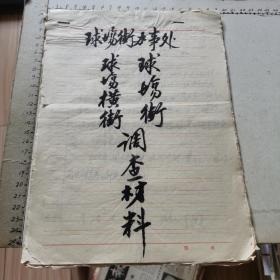 球場街办事处
球場街
球場横街
調查材料